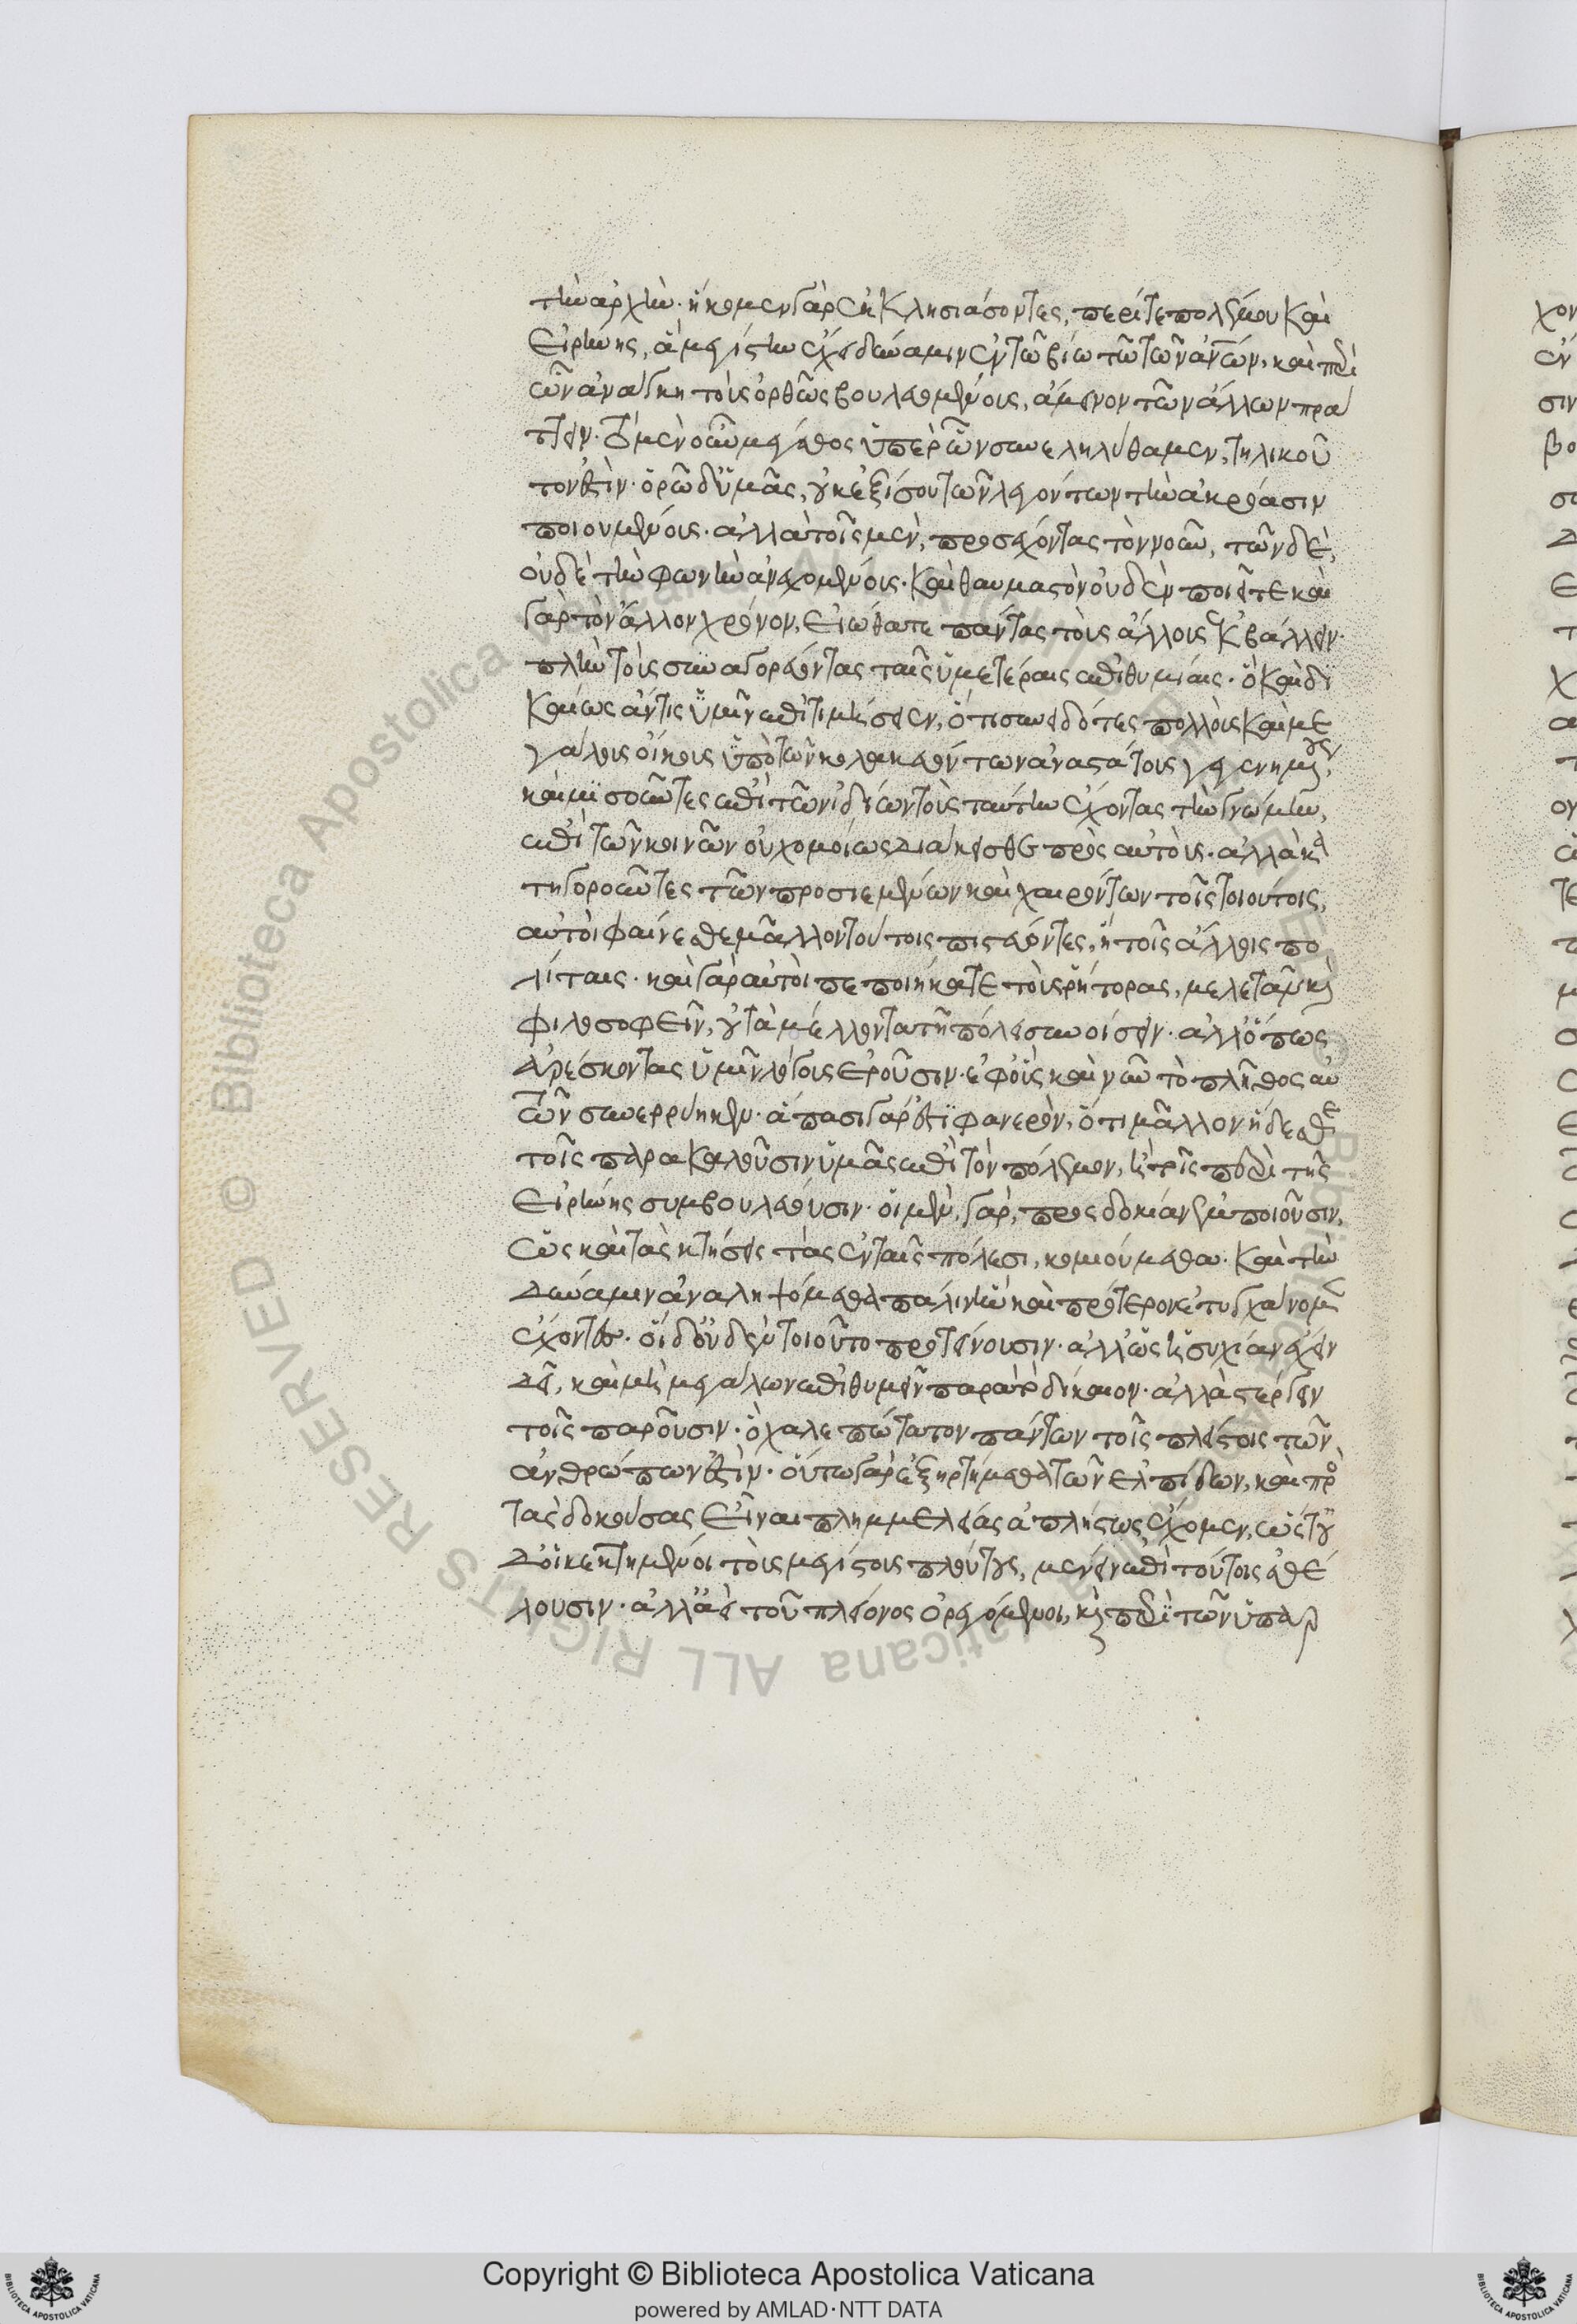 τὴν ἀρχήν. ἥκομεν γὰρ ἐκκλησιάσοντες, περί τε πολέμου καὶ
εἰρήνης, ἃ μεγίστην ἔχει δύναμιν ἐν τῷ βίῳ τῷ τῶν ἀνων, καὶ περὶ
ὧν ἀνάγκη τοὺς ὀρθῶς βουλευομένους, ἄμεινον τῶν ἄλλων πράτ
τειν. τὸ μὲν οὖν μέγεθος ὑπὲρ ὧν συνεληλύθαμεν, τηλικοῦ
τόν ἐστιν. ὁρῶ δ' ὑμᾶς, οὐκ ἐξ ἴσου τῶν λεγόντων τὴν ἀκρόασιν
ποιουμένους. ἀλλὰ τοῖς μὲν, προσέχοντας τὸν νοῦν, τῶν δὲ,
οὐδὲ τὴν φωνὴν ἀνεχομένους. καὶ θαυμαστὸν οὐδὲν ποιεῖτε καὶ
γὰρ τὸν ἄλλον χρόνον, εἰώθατε πάντας τοὺς ἄλλους ἐκβάλλειν.
πλὴν τοὺς συναγορεύοντας ταῖς ὑμετέραις ἐπιθυμίαις. ὃ καὶ δι
καίως ἄν τις ὑμῖν ἐπιτιμήσειεν, ὅτι συνειδότες πολλοὺς καὶ με
γάλους οἴκους ὑπὸ τῶν κολακευόντων ἀναστάτους γεγενημένους,
καὶ μισοῦντες ἐπὶ τῶν ἰδίων τοὺς ταύτην ἔχοντας τὴν γνώμην,
ἐπὶ τῶν κοινῶν οὐχ ὁμοίως διάκεισθε πρὸς αὐτούς. ἀλλὰ κα
τηγοροῦντες τῶν προσιεμένων καὶ χαιρόντων τοῖς τοιούτοις,
αὐτοὶ φαίνεσθε μᾶλλον τούτοις πιστεύοντες, ἢ τοῖς ἄλλοις πο
λίταις. καὶ γὰρ αὐτοὶ πεποιήκατε τοὺς ῥήτορας, μελετᾶν καὶ
φιλοσοφεῖν, οὐ τὰ μέλλοντα τῇ πόλει συνοίσειν. ἀλλ' ὅπως
ἀρέσκοντας ὑμῖν λόγους ἐροῦσιν. ἐφ' οὓς καὶ νῦν τὸ πλῆθος αὐ
τῶν συνερρύηκεν. ἅπασι γάρ ἐστι φανερὸν, ὅτι μᾶλλον ἥδεσθε
τοῖς παρακαλοῦσιν ὑμᾶς ἐπὶ τὸν πόλεμον, ἢ τοῖς περὶ τῆς
εἰρήνης συμβουλεύουσιν. οἱ μὲν, γὰρ, προσδοκίαν ἐμποιοῦσιν,
ὡς καὶ τὰς κτήσεις τὰς ἐν ταῖς πόλεσι, κομιούμεθα. καὶ τὴν
δύναμιν ἀναληψόμεθα πάλιν ἣν καὶ πρότερον ἐτυγχάνομεν
ἔχοντες. οἱ δ' οὐδὲν τοιοῦτο προτείνουσιν. ἀλλ' ὡς ἡσυχίαν ἔχειν
δεῖ, καὶ μὴ μεγάλων ἐπιθυμεῖν παρὰ τὸ δίκαιον. ἀλλὰ στέργειν
τοῖς παροῦσιν. ὃ χαλεπώτατον πάντων τοῖς πλείστοις τῶν
ἀνθρώπων ἐστίν. οὕτω γὰρ ἐξηρτήμεθα τῶν ἐλπίδων, καὶ πρὸς
τὰς δοκούσας εἶναι πλημμελείας ἀπλήστως ἔχομεν, ὥστ' οὐ
δ' οἱ κεκτημένοι τοὺς μεγίστους πλούτους, μένειν ἐπὶ τούτοις ἐθέ
λουσιν. ἀλλ' ἀεὶ τοῦ πλείονος ὀρεγόμενοι, καὶ περὶ τῶν ὑπαρ